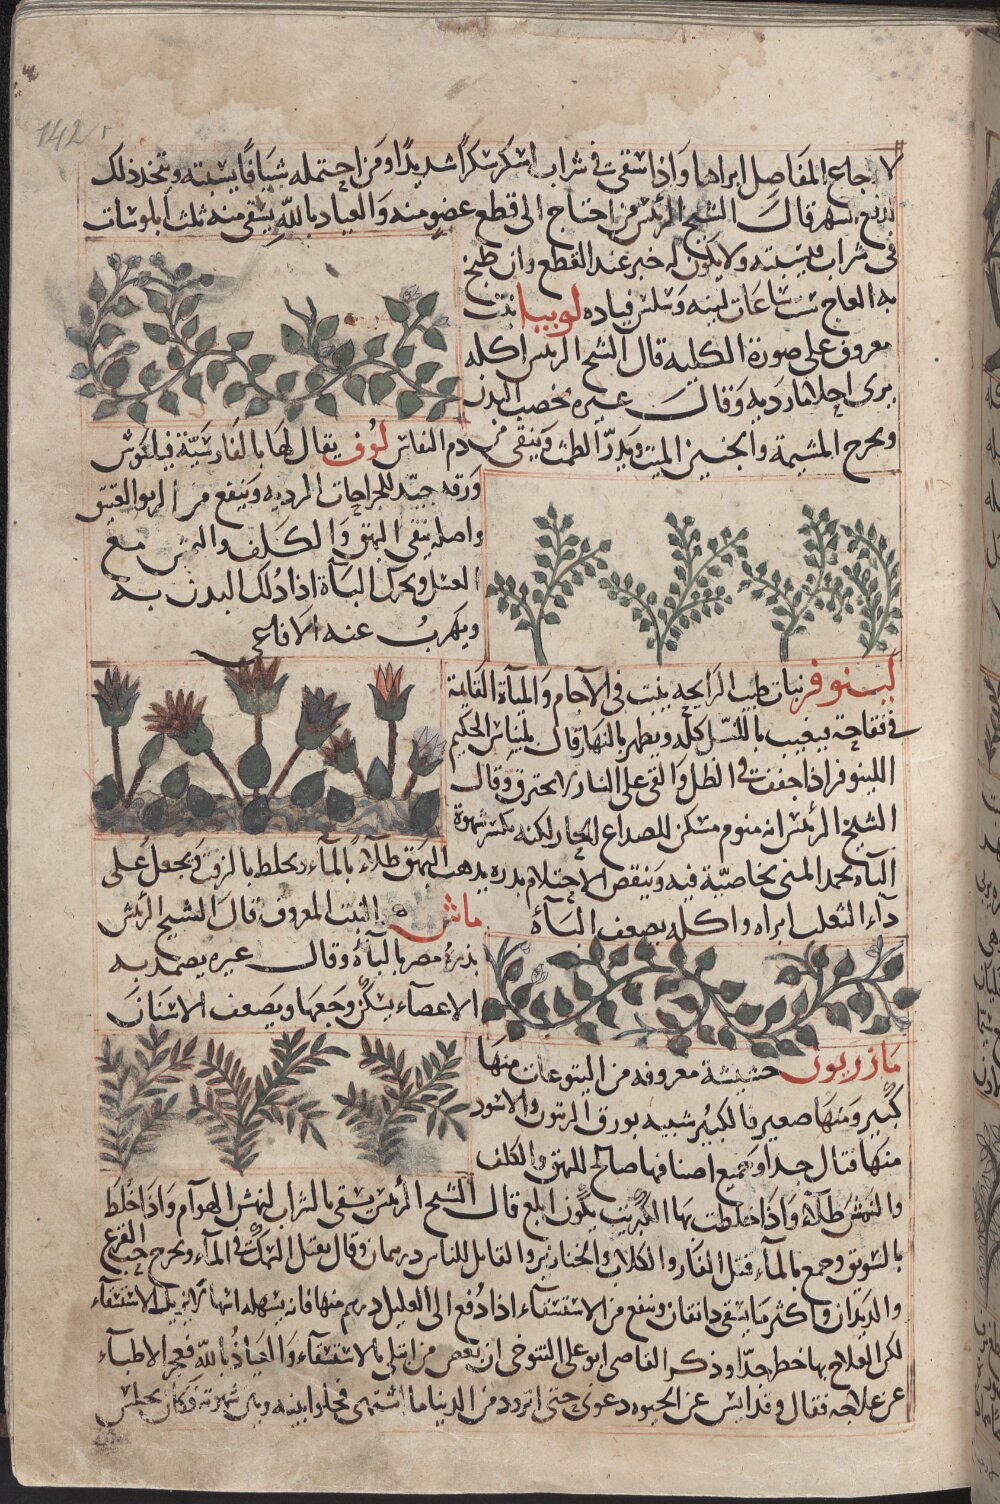 142
لاوجاع المفاصل ابراها واذا سقى فى شراب اسكر سكرا شديدا ومن احتمله شيافا يسبته ويتخذ ذلك
قال الشيخ الرئيس من احتاج الى قطع عضو منه والعياذ بالله يسقى منه ثلث ابلوسات
فى شراب فيسبته ولا يكون له خبر عند القطع وان طبخ
به العاج ست ساعات لينه وسلس قياده لوبيا نبت
معروف على صورة الكلية قال الشيخ الرئيس اكله
يرى احلاما ردية وقال غيره يخصب البدن
ويخرج المشيمة والجنين الميت ويدر الطمث وينقى من
دم النفاس لوف يقال لها بالفارسية فيلكوش
ورقه جيد للجراحات الردية وينفع من الربو العتيق
واصله ينقى البهق والكلف والنمش مع
العسل ويحرك الباة اذا دلك البدن به
ويهرب عنه الافاعى
لينوفر نبات طيب الرايحة ينبت فى الآجام والمياة القايمة
فيغيب بالليل كله ويظهر بالنهار قال بليناس الحكيم
اللينوفر اذا جففت فى الظل والقى على النار لا يحترق وقال
الشيخ الرئيس انه منوم مسكن للصداع الحار لكنه يكسر شهوة
الباه يجمد المنى بخاصية فيه وينقص الاحتلام بذره يذهب البهق طلاء بالماء ويخلط بالزفت ويجعل على
داء الثعلب ابراه واكله يضعف الباة
ماش النبت المعروف قال الشيخ الرئيس
بذره مضر بالباة وقال غيره يضمد به
الاعضاء يسكن وجعها ويضعف الاسنان
مازريون حشيشة معروفة من اليتوعات منها
كبير ومنها صغير فالكبير شبيه بورق الزيتون والاسود
منها قتال جدا وجميع اصنافها صالح للبهق والكلف
والنمش طلاء واذا خلطت بها الكبريت يكون ابلغ قال الشيخ الرئيس يسقى بالشراب لنهش الهوام واذا خلط
بالسويق وجمع بالماء قتل الفار والكلاب والخنازير والقاتل للناس درهمان وقال يقتل السمك فى الماء ويخرج حب القرع
والديدان واكثر ما يسقى دانقان وينفع من الاستسقاء اذا دفع الى العليل درهم منها فانه يسهله الاستسقاء
لكن العلاج بها خطر جدا وذكر القاضى ابو على التنوخى ان بعض من ابتلى بالاستسقاء والعياذ بالله فعجز الاطباء
عن علاجه فقال وقد ايس عن الحيوه دعونى حتى اتزود من الدنيا ما اشتهى فخلوا بينه وبين شهوته فكان يجلس